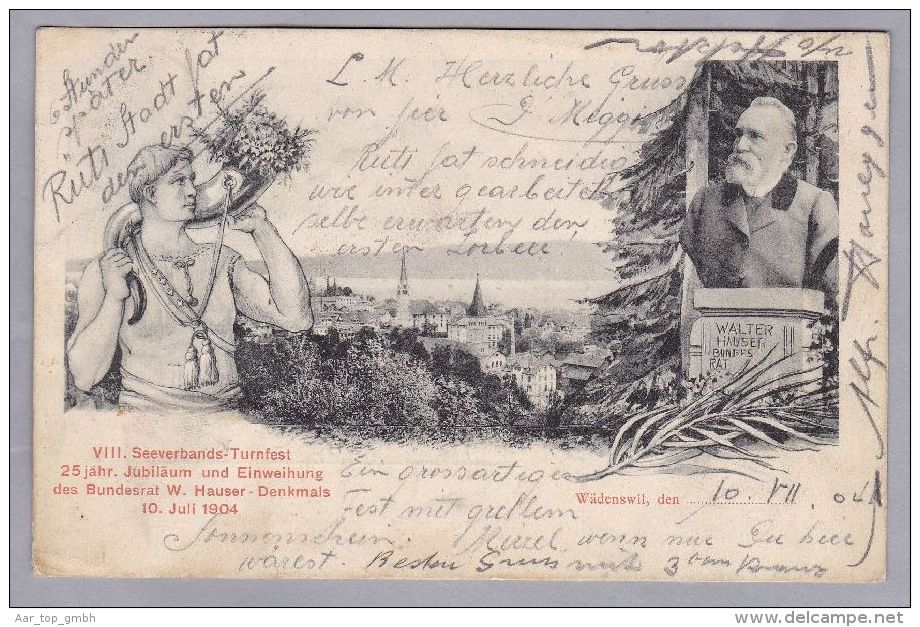 Stunden
später.
Rüti Stadt hat
den ersten
L. M. Herzliche Gruss
von hier
Rüti hat schneidig
wie unter gearbeitet
selbe erwarten den
ersten Lorbeer
WALTER
HAUSER
BUNDES
RAT
VIII. Seeverbands-Turnfest
25 jähr. Jubiläum und Einweihung
des Bundesrat W. Hauser-Denkmals
10. Juli 1904
Wädenswil, den 10. VII. 04
Ein grossartiges
Fest mit grellem
Sonnenschein. wenn nur Du hier
wärest. Besten Gruss
Aar_top_gmbh
www.delcampe.net